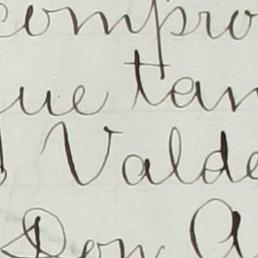 compro
ue tan
Valde
Don A